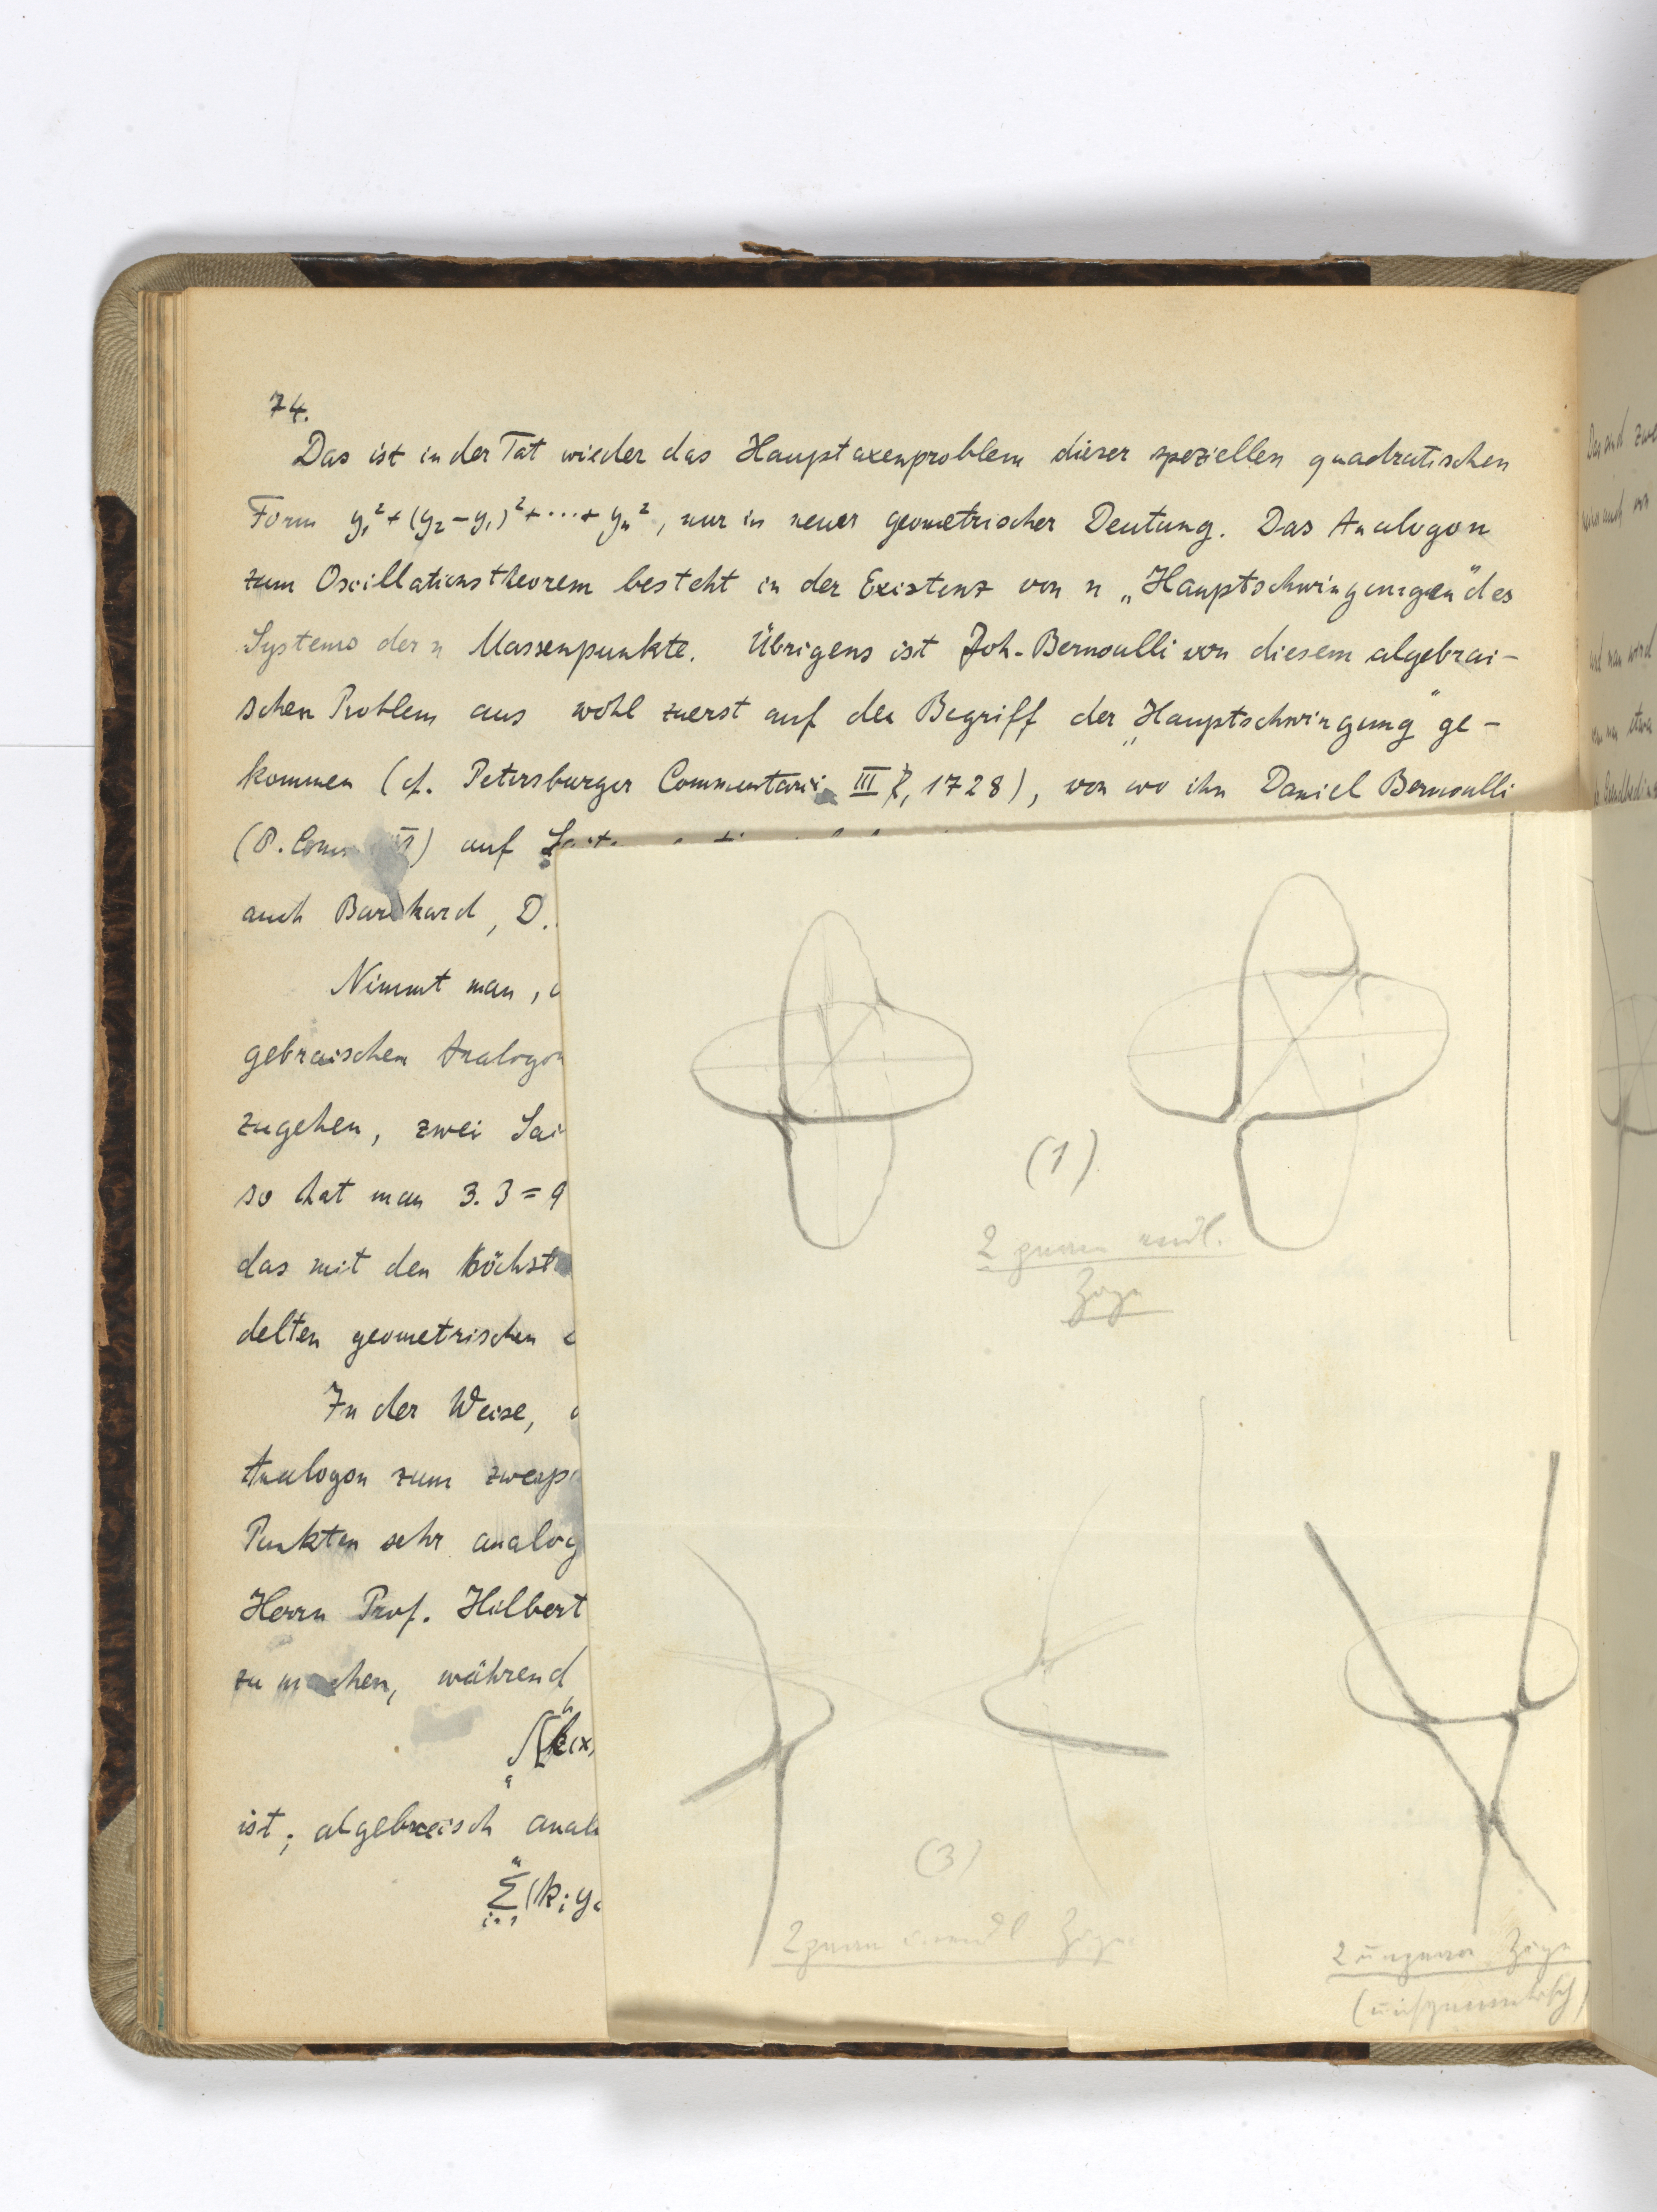 74.
Das ist in der Tat wieder das Hauptaxenproblem dieser speziellen quadratischen
Form y₁² + (y₂ - y₁)² + ⋯ + yₙ², nur in neuer geometrischer Deutung. Das Analogon
zum Oscillationstheorem besteht in der Existenz von n „Hauptschwingungen" des
Systems der n Massenpunkte. Übrigens ist Joh. Bernoulli von diesem algebrai-
schen Problem aus wohl zuerst auf den Begriff der „Hauptschwingung" ge-
kommen (cf. Petersburger Commentarii III, 1728), von wo ihn Daniel Bernoulli
(P. Comm. ) auf
auch Burkhard, D.
Nimmt man,
gebraischen Analogon
zugehen, zwei Sai
so hat man 3.3 = 9
das mit den höchst
delten geometrischen
In der Weise,
Analogon zum zweip
Punkten sehr analog
Herrn Prof. Hilbert
zu machen, während
∫(k(x,
ist; algebraisch anal
Σ(kᵢ y
(1)
2
Züge
(3)
2 Züge
2 Züge
(unsymmetrisch)